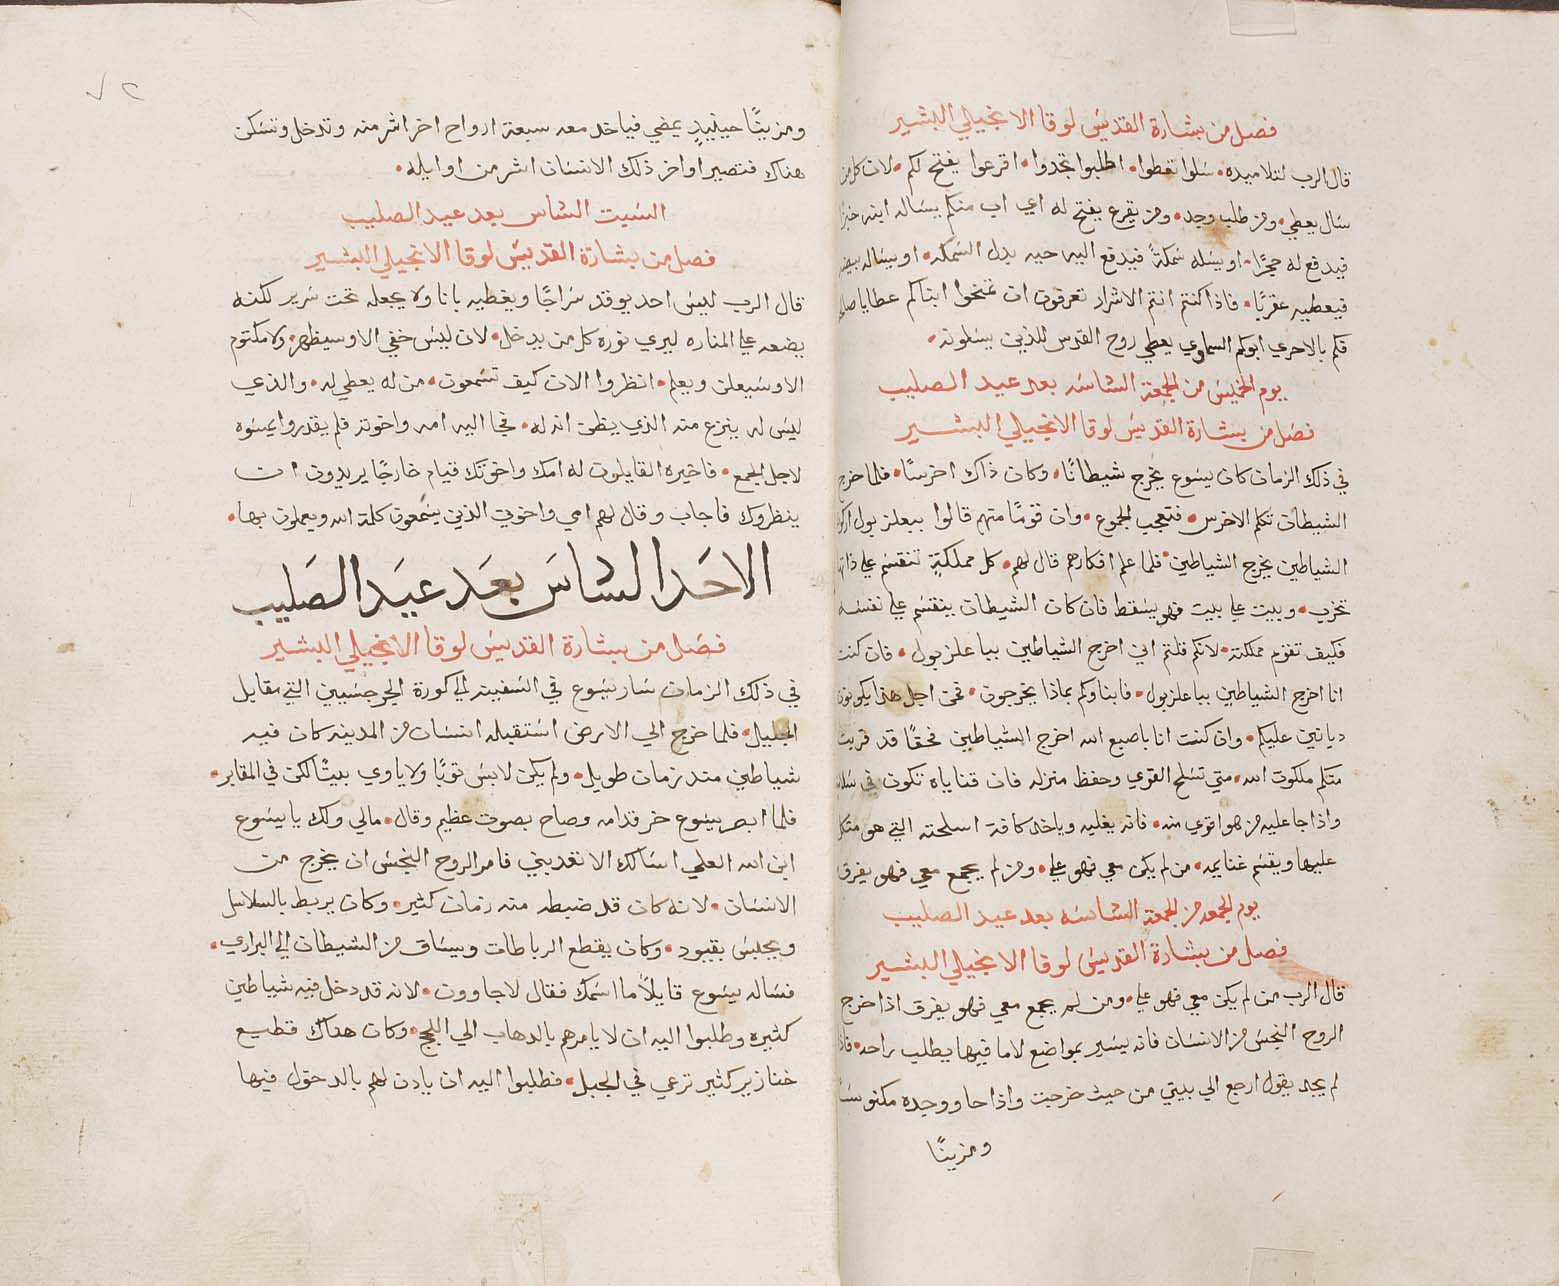 فصل من بشارة القديس لوقا الانجيلي البشير
قال الرب لتلاميده • سلوا تعطوا • اطلبوا تجدوا • اقرعوا يفتح لكم • لان كل من
سال يعطي • ومن طلب وجد • ومن يقرع يفتح له اي اب منكم يساله ابنه خبزا
فيدفع له حجرًا • او يسله سمكةً فيدفع اليه حيه بدل السمكه • او يساله بيضه
فيعطيه عقربًا • فاذا كنتم انتم الاشرار تعرفون ان تمنحوا ابناكم عطايا صالحه
فكم بالاحري ابوكم السماوي يعطي روح القدس للذين يسلونه •
يوم الخميس من الجمعة الساسه بعد عيد الصليب
فصل من بشارة القديس لوقا الانجيلي البشير
في ذلك الزمان كان يسوع يخرج شيطانًا • وكان ذاك اخرسًا • فلما خرج
الشيطان تكلم الاخرس • فتعجب الجموع • وان قومًا منهم قالوا ببعلزبول اركون
الشياطين يخرج الشياطين • فلما علم افكارهم قال لهم • كل مملكةٍ تنقسم علي ذاتها
تخرب • وبيت علي بيت فهو يسقط فان كان الشيطان ينقسم علي نفسه
فكيف تقوم مملكته • لانكم قلتم اني اخرج الشياطين بباعلزبول • فان كنت
انا اخرج الشياطين بباعلزبول • فابناوكم بماذا يخرجون • فمن اجل هذا يكونون
ديانين عليكم • وان كنت انا باصبع الله اخرج الشياطين فحقًا قد قربت
منكم ملكوت الله • متي تسلح القوي وحفظ منزله فان قناياه تكون في سلامه
واذا جا عليه من هو اقوي منه • فانه يغلبه وياخد كافة اسلحته التي هو متكل
عليها ويقسم غنايمه • من لم يكن معي فهو علي • ومن لم يجمع معي فهو يفرق
يوم الجمعه من الجمعة الساسه بعد عيد الصليب
فصل من بشارة القديس لوقا الانجيلي البشير
قال الرب من لم يكن معي فهو علي • ومن لم يجمع معي فهو يفرق اذا خرج
الروح النجس من الانسان فانه يسير بمواضع لاما فيها يطلب راحه • فاذا
لم يجد يقول ارجع الي بيتي من حيث خرجت واذا جا ووجده مكنوسًا
ومزينًا
٧٢
ومزينًا حينيدٍ يمضي فياخد معه سبعة ارواح اخر اشر منه وتدخل وتسكن
هناك فتصير اواخر ذلك الانسان اشر من اوايله •
السبت الساس بعد عيد الصليب
فصل من بشارة القديس لوقا الانجيلي البشير
قال الرب ليس احد يوقد سراجًا ويغطيه بانا ولا يجعله تحت سرير لكنه
يضعه علي المناره ليري نوره كل من يدخل • لان ليس خفي الا وسيظهر • ولا مكتوم
الا وسيعلن ويعلم • انظروا الان كيف تسمعون • من له يعطي له • والذي
ليس له ينزع منه الذي يظن انه له • فجا اليه امه واخوته فلم يقدروا يمسوه
لاجل الجمع • فاخبره القايلون له امك واخوتك قيام خارجًا يريدون ان
ينظروك فاجاب وقال لهم امي واخوتي الذين يسمعون كلمة الله ويعملون بها •
الاحد الساس بعد عيد الصليب
فصل من بشارة القديس لوقا الانجيلي البشير
في ذلك الزمان سار يسوع في السفينه الي كورة الجرجسيين التي مقابل
الجليل • فلما خرج الي الارض استقبله انسان من المدينه كان فيه
شياطين مند زمان طويل • ولم يكن لابس توبًا ولا ياوي بيتًا لكن في المقابر •
فلما ابصر يسوع خر قدامه وصاح بصوت عظيم وقال • مالي ولك يا يسوع
ابن الله العلي اسالك الا تعدبني فامر الروح النجس ان يخرج من
الانسان • لانه كان قد ضبطه منه زمان كثير • وكان يربط بالسلاسل
ويحبس بقيود • وكان يقطع الرباطات ويساق من الشيطان الي البراري •
فساله يسوع قايلاً ما اسمك فقال لاجاوون • لانه قد دخل فيه شياطين
كثيره وطلبوا اليه ان لا يامرهم بالدهاب الي اللجج • وكان هناك قطيع
خنازير كثير ترعي في الجبل • فطلبوا اليه ان يادن لهم بالدخول فيها